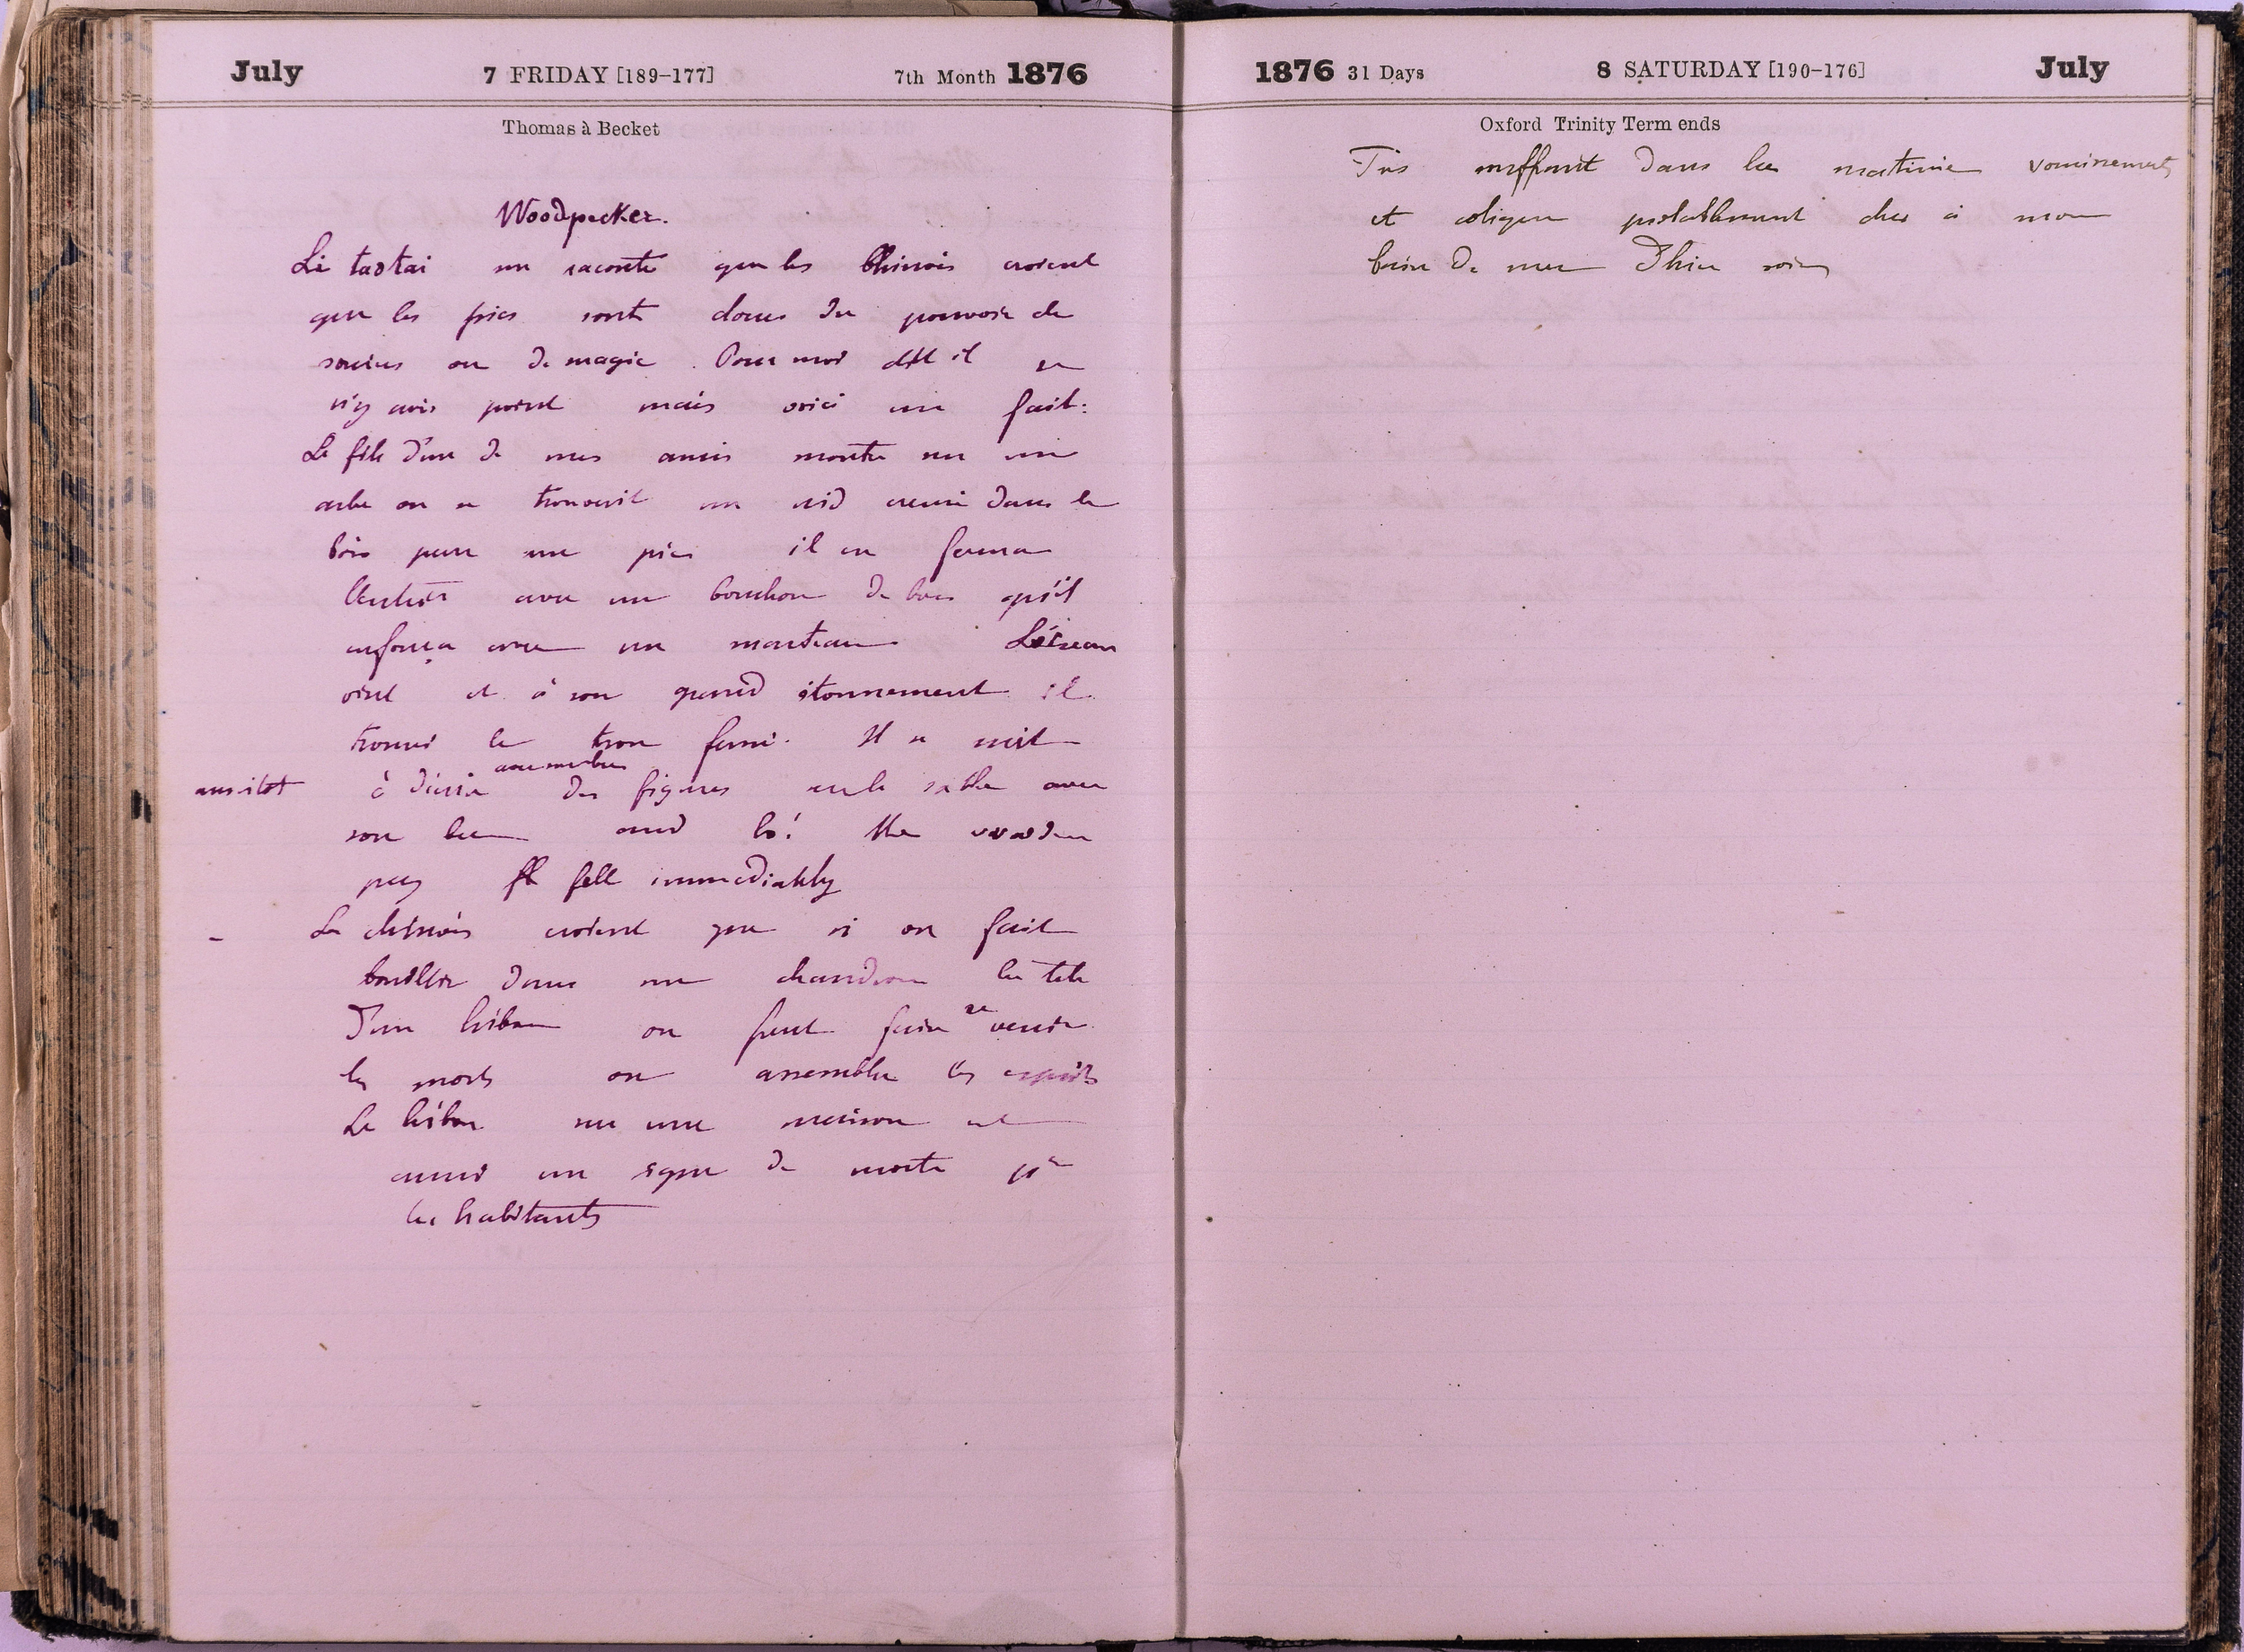 July 7 FRIDAY [189-177] 7th Month 1876
Thomas à Becket
Woodpecker.
Le taotai me raconte que les Chinois croient
que les pies sont doues du pouvoir de
sorciers ou de magie. Pour moi dit il je
n'y crois point mais voici un fait:
Le fils d'un de mes amis monta sur un
arbe ou se trouvait un nid creusé dans le
bois par une pie il en ferma
l'entrée avec un bouchon de bois qu'il
enfonça avec un marteau L'oiseau
vint et à son grand étonnement il
trouva le trou fermé. Il se mit
aussitot à décrire des figures sur le sable avec
son bec and lo! the wooden
peg fell immediately
- Les chinois croient que si on fait
bouillir dans un chaudron la tete
d'un hibou on peut faire revenir
les morts on assemble les esprits
Le hibou sur une maison est
aussi un signe de morte pr
les habitants
1876 31 Days 8 SATURDAY [190-176] July
Oxford Trinity Term ends
Tres souffrant dans la matinée vomissements
et coliques probablement dus à mon
bain de mer d'hier soir